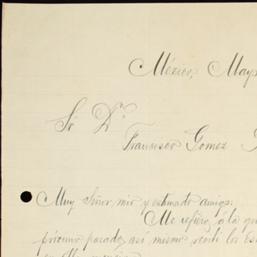 México, Mayo
Sr. Dn.
Francisco Gomez
Muy Señor mio y estimado amigo:
Me refiero, á la
próximo pasado, así mismo recibí los